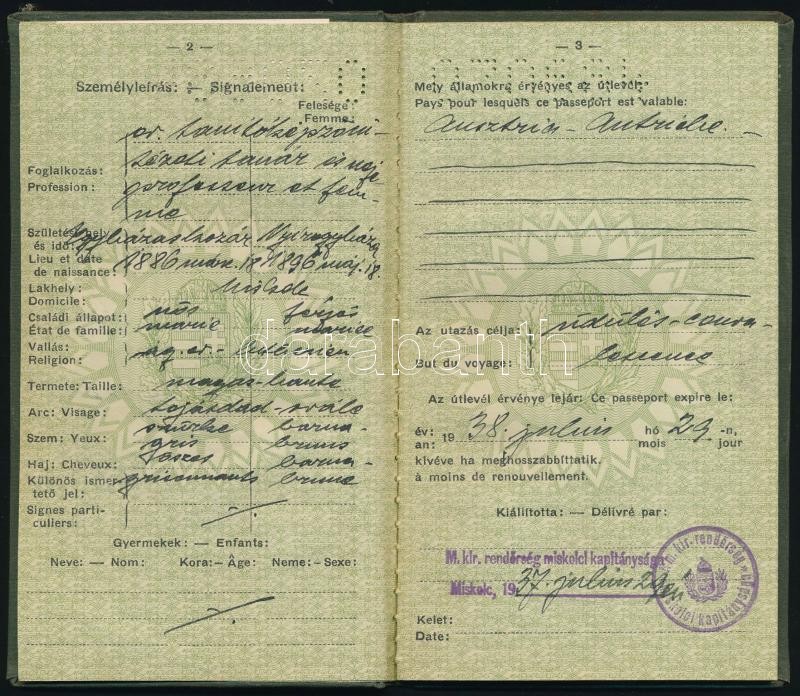 — 2 —
Személyleírás: — Signalement:
Felesége:
Femme:
or. tanítóképző-
tézeti tanár és neje
Foglalkozás:
Profession: professeur et fem-
me
Születési hely Nyíregyháza
és idő:
Lieu et date
de naissance: 1886 márc. 18. 1896 máj. 18.
Lakhely: Miskolc
Domicile:
Családi állapot: nős férjes
État de famille: marié mariée
Vallás: ág. ev. - luthérien
Religion:
Termete: Taille: magas - haute
Arc: Visage: tojásdad - ovále
Szem: Yeux: szürke barna
gris bruns
Haj: Cheveux: őszes barna -
Különös ismer- grisonnants brune
tető jel:
Signes parti-
culiers:
Gyermekek: — Enfants:
Neve: — Nom: Kora: — Âge: Neme: — Sexe:
— 3 —
Mely államokra érvényes az útlevél:
Pays pour lesquels ce passeport est valable:
Ausztria - Autriche. —
Az utazás célja: üdülés - conva-
But du voyage: lescence
Az útlevél érvénye lejár: Ce passeport expire le:
év: 1938. július hó 29 -n,
an: mois jour
kivéve ha meghosszabbíttatik.
à moins de renouvellement.
Kiállította: — Délivré par:
M. kir. rendőrség miskolci kapitánysága
Miskolc, 1937. július 29-én
m. kir. rendőrség miskolci kapitánysága
Kelet:
Date:
darabanth